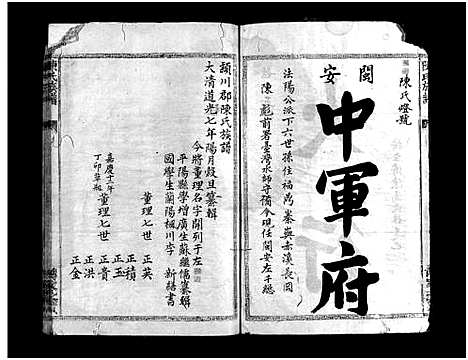 陳氏燈號
閩安
中軍府
法陽公派下六世孫住福寧秦嶼赤溪長岡
陳彪前署臺灣水師守備今現任閩安左千總
潁川郡陳氏族譜
大清道光七年陽月穀旦纂輯
今將董理名字開列于左
平陽縣學增廣生蘇徽儒纂輯
國學生蘭陽楓川李新緒書
嘉慶十二年丁卯草板
董理七世
正英
正積
正玉
董理七世
正貴
正洪
正金